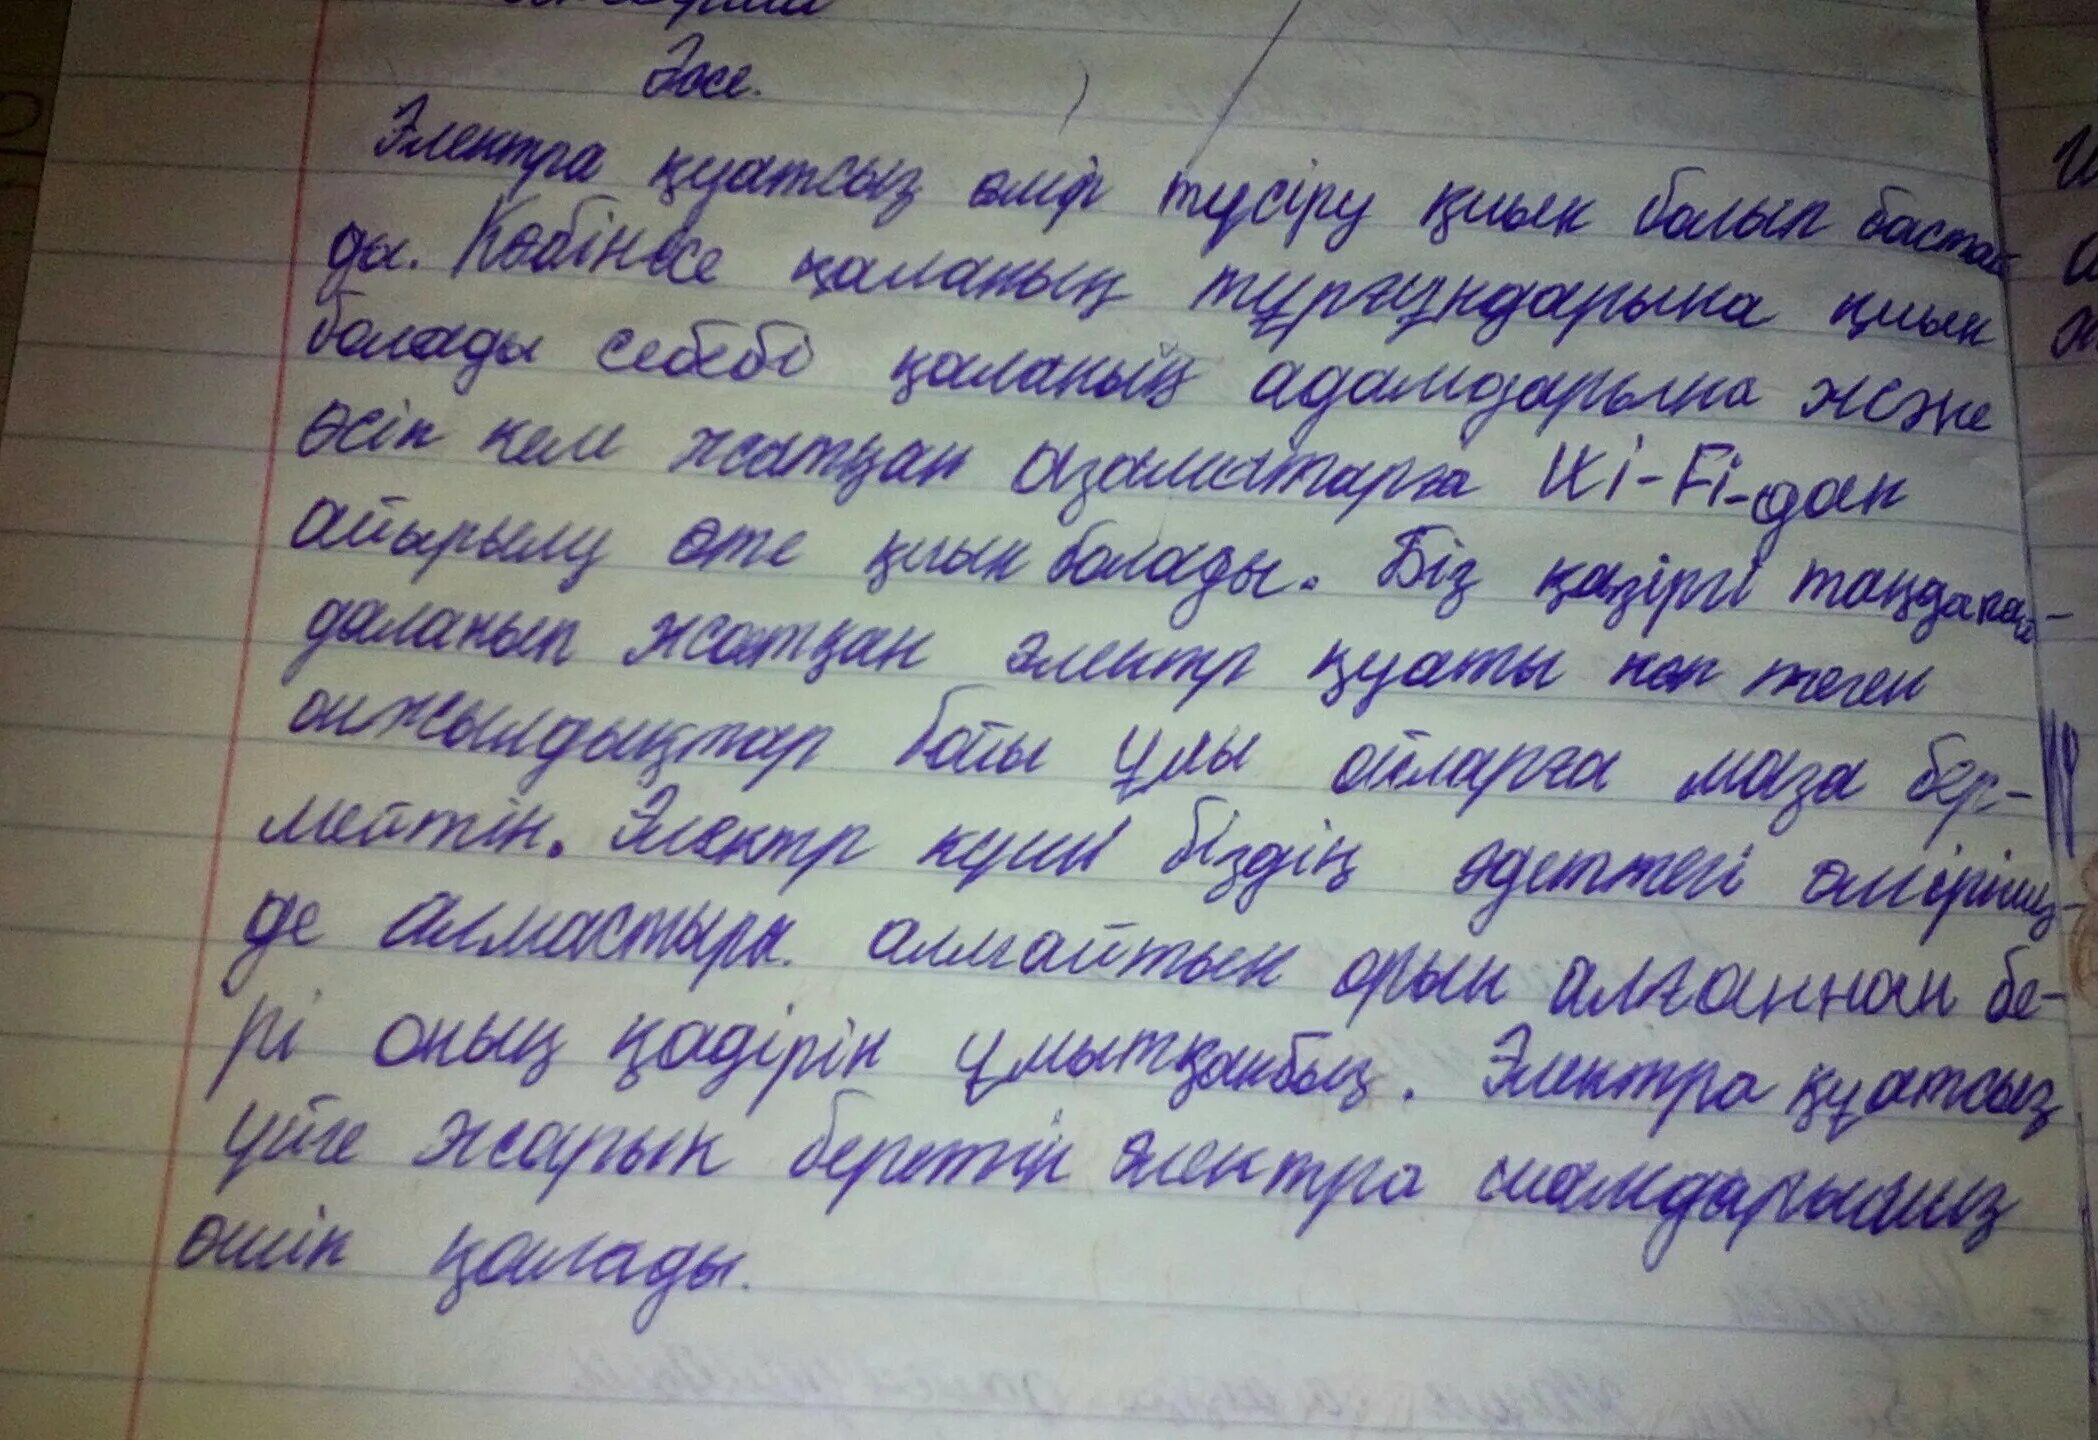 Эссе.
Электра қуатсыз өмір түсіру қиын болып бастай
ды. Көбінесе қаланың тұрғұндарына қиын
болады себебі қаланың адамдарына және
өсіп келе жатқан азаматтарға Wi-Fi-дан
айырылу өте қиын болады. Біз қазіргі таңда пай-
даланып жатқан электр қуаты көп теген
онжылдықтар бойы ұлы ойларға маза бер-
мейтін. Электр күші біздің әдеттегі өміріміз-
де алмастыра алмайтын орын алғаннан бе-
рі оның қадірін ұмытқанбыз. Электра қуатсыз
үйге жарық беретін электра шамдарымыз
өшіп қалады.